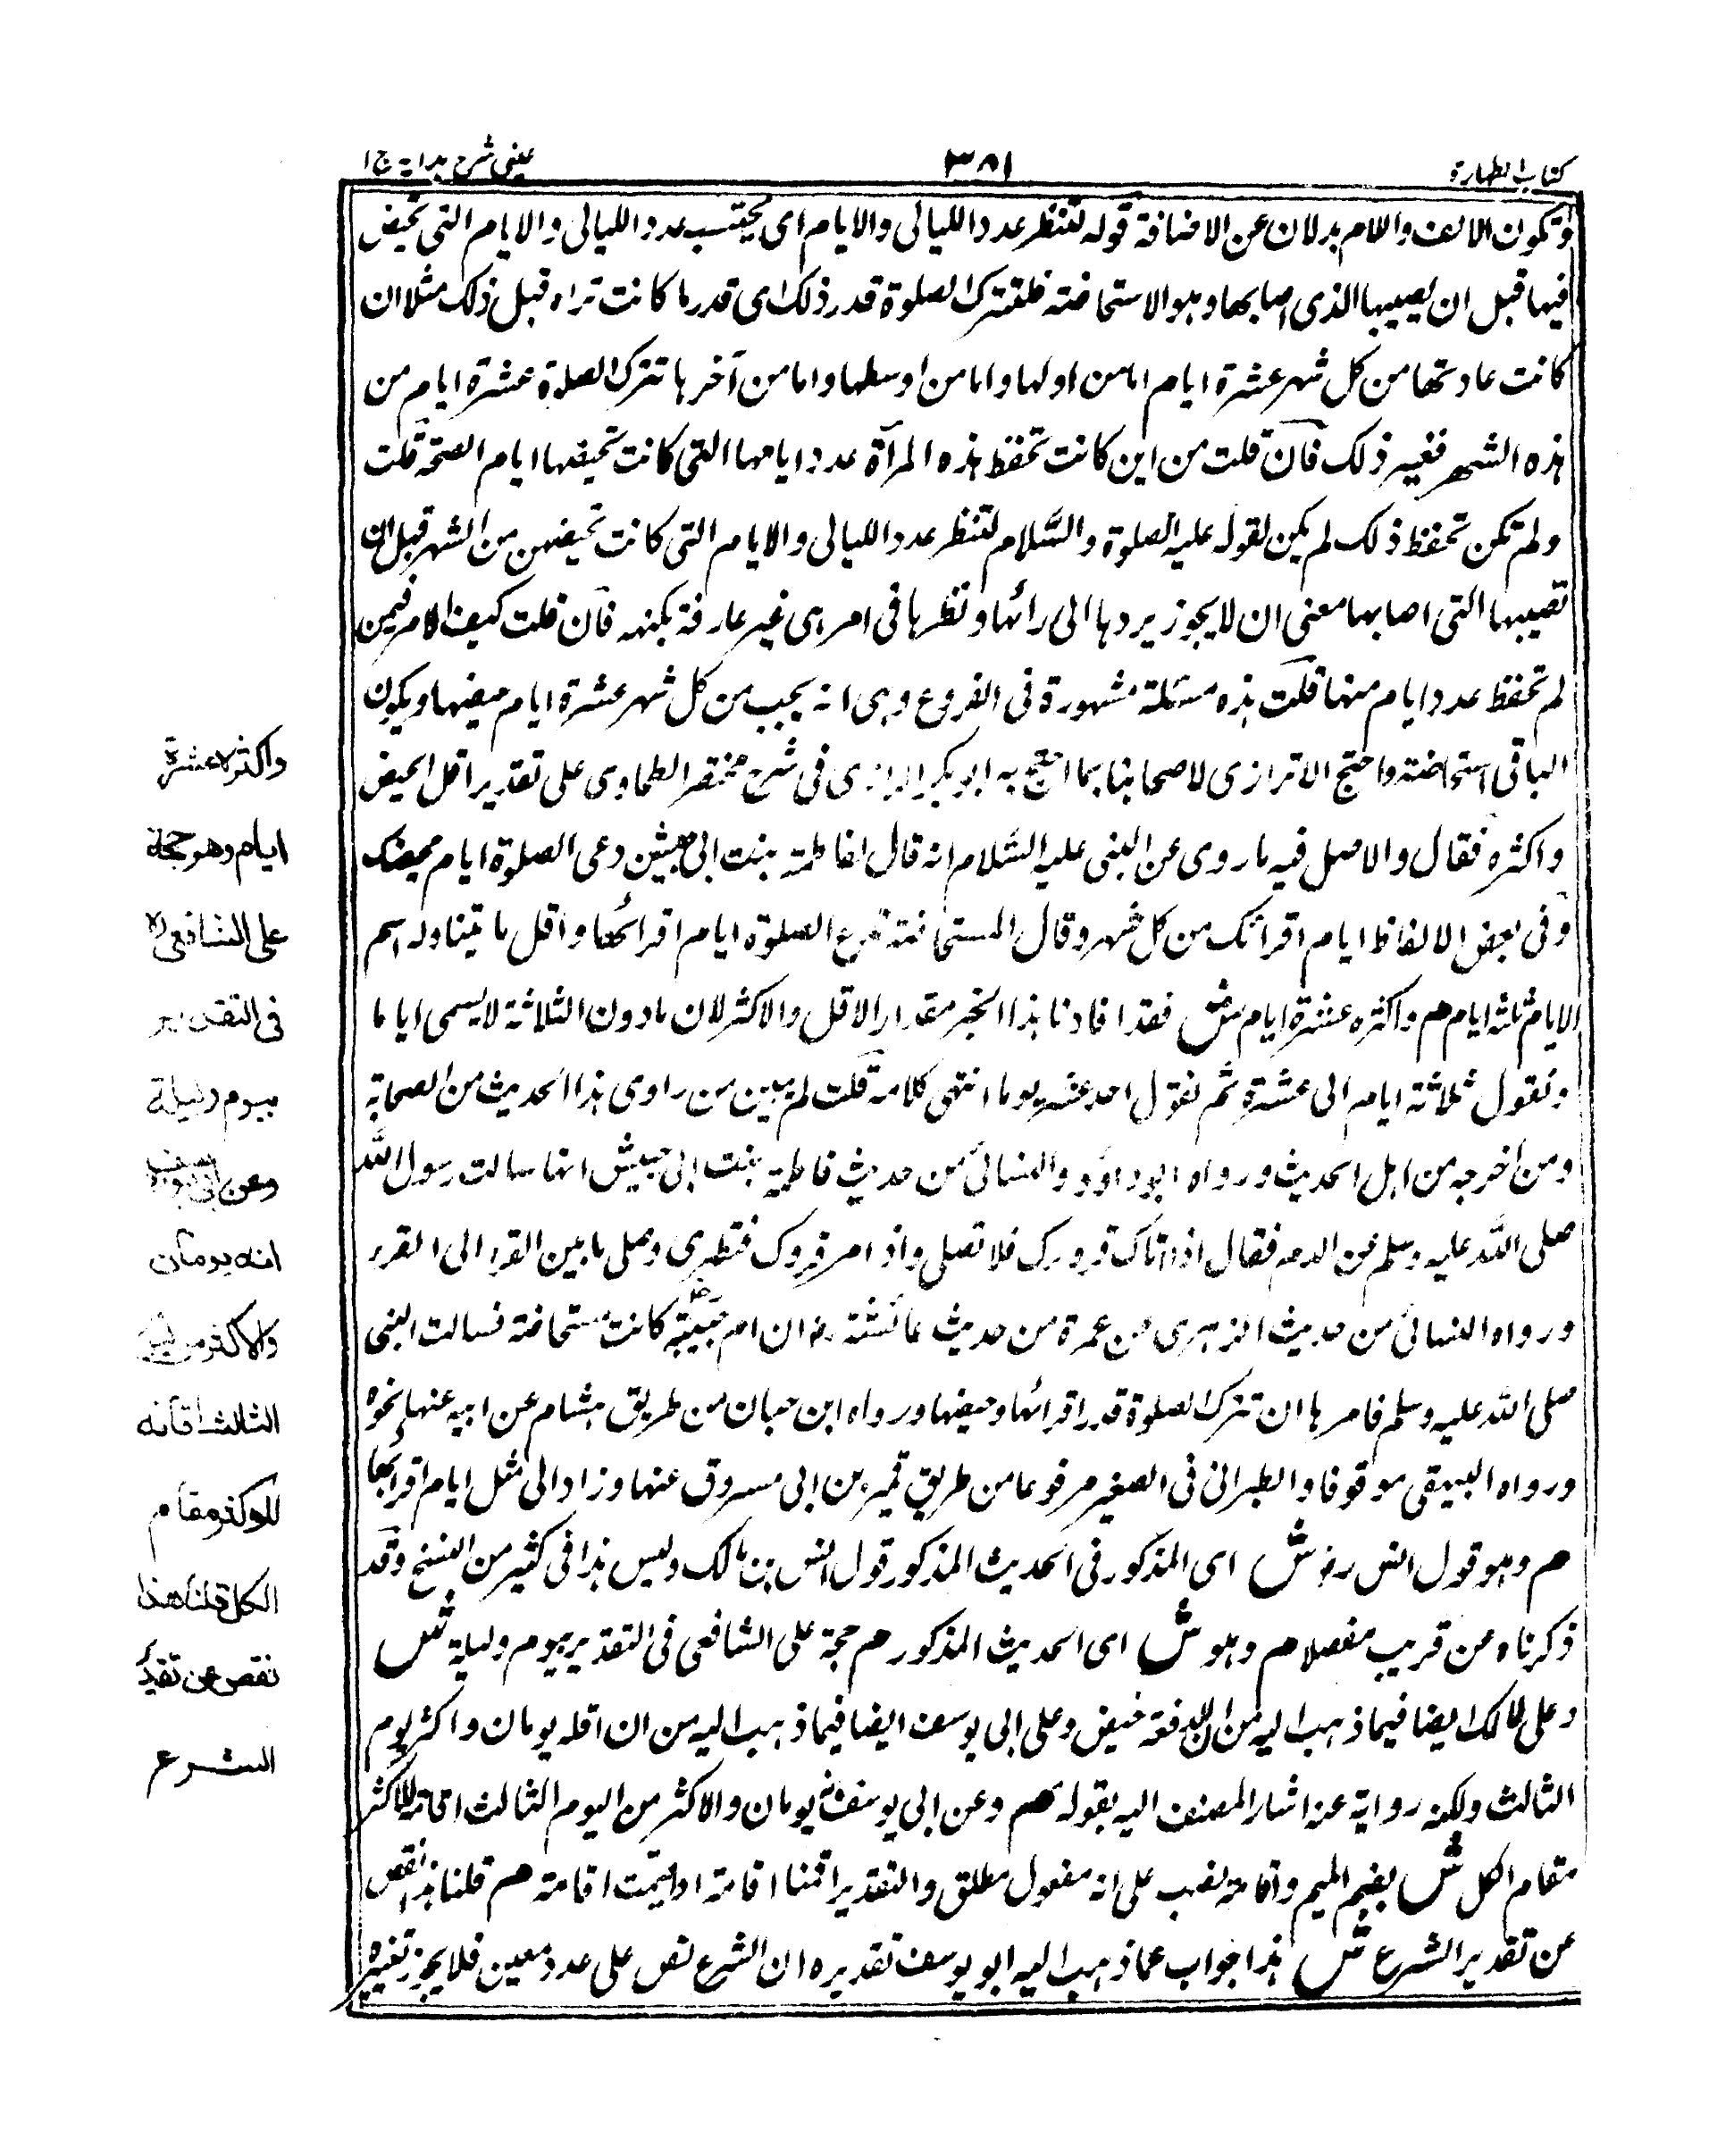 كتاب الطهارة
٣٨١
عينى شرح هداية ج ١
وتكون الالف واللام بدلان عن الاضافة قوله لتنظر عدد الليالى والايام اى يحتسب عدد الليالى والايام التى تحيض
فيها قبل ان يصيبها الذى اصابها وهو الاستحاضة فلتترك الصلوة قدر ذلك اى قدر ما كانت تراه قبل ذلك مثلا ان
كانت عادتها من كل شهر عشرة ايام اما من اولها واما من اوسطها واما من آخرها تترك الصلوة عشرة ايام من
هذه الشهر فغير ذلك فان قلت من اين كانت تحفظ هذه المرآة عدد ايامها التى كانت تحيضها ايام الصحة قلت
ولم تكن تحفظ ذلك لم يكن لقوله عليه الصلوة والسلام لتنظر عدد الليالى والايام التى كانت تحيضهن من الشهر قبل ان
تصيبها التى اصابها معنى ان لا يجوز يردها الى رائها ونظرها فى امر هى غير عارفة بكنهه فان قلت كيف الامر فيمن
لم تحفظ عدد ايام منها قلت هذه مسئلة مشهورة فى الفروع وهى انه يجب من كل شهر عشرة ايام حيضها ويكون
الباقى استحاضة واحتج الاترازى لاصحابنا بما احتج به ابو بكر الرازى فى شرح مختصر الطحاوى على تقدير اقل الحيض
واكثره فقال والاصل فيه ما روى عن النبى عليه السلام انه قال لفاطمة بنت ابى حبيش دعى الصلوة ايام محيضك
وفى بعض الالفاظ ايام اقرائك من كل شهر وقال المستحاضة تدع الصلوة ايام اقرائها واقل ما يتناوله اسم
الايام ثلثة ايام هم واكثره عشرة ايام ش فقد افادنا هذا الخبر مقدار الاقل والاكثر لان ما دون الثلاثة لا يسمى اياما
ونقول ثلاثة ايام الى عشرة ثم نقول احد عشر يوما انتهى كلامه قلت لم يبين من راوى هذا الحديث من الصحابة
ومن أخرجه من اهل الحديث ورواه ابو داؤد والنسائى من حديث فاطمة بنت ابى حبيش انها سالت رسول الله
صلى الله عليه وسلم عن الدم فقال اذا اتاك قرورك فلا تصلى واذا مر قروك فتطهرى وصلى ما بين القرء الى القرء
ورواه النسائى من حديث الزهرى عن عمرة من حديث عائشة رض ان ام حبيبة كانت مستحاضة فسالت النبى
صلى الله عليه وسلم فامرها ان تترك الصلوة قدر اقرائها وحيضها ورواه ابن حبان من طريق هشام عن ابيه عنها نحوه
ورواه البيهقى موقوفا والطبرانى فى الصغير مرفوعا من طريق قمير بن ابى مسروق عنها وزاد الى مثل ايام اقرائها
هم وهو قول انس رض ش اى المذكور فى الحديث المذكور قول انس بن مالك وليس هذا فى كثير من النسخ وقد
ذكرناه عن قريب مفصلا هم وهو ش اى الحديث المذكور هم حجة على الشافعى فى التقدير بيوم وليلة ش
وعلى مالك ايضا فيما ذهب اليه من ان الدفعة حيض وعلى ابى يوسف ايضا فيما ذهب اليه من ان اقله يومان واكثر يوم
الثالث ولكنه رواية عنه اشار المصنف اليه بقوله هم وعن ابى يوسف يومان والاكثر من اليوم الثالث اقامة للاكثر
مقام الكل ش بضم الميم واقامة نصب على انه مفعول مطلق والتقدير اقمنا اقامة او اقيمت اقامة هم قلنا هذا نقص
عن تقدير الشرع ش هذا جواب عما ذهب اليه ابو يوسف تقديره ان الشرع نص على عدد معين فلا يجوز تغييره
واكثره عشرة
ايام وهو حجة
على الشافعى رح
فى التقدير
بيوم وليلة
وعن ابى يوسف
انه يومان
والاكثر من اليوم
الثالث اقامة
للاكثر مقام
الكل قلنا هذا
نقص عن تقدير
الشرع